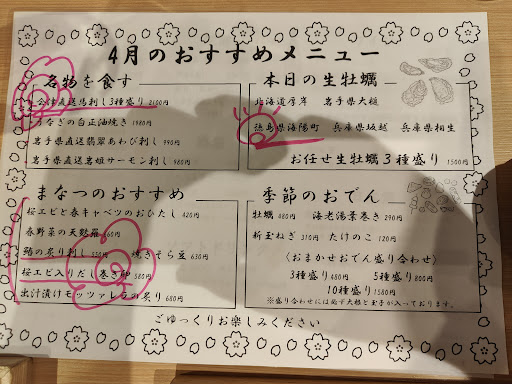 4月のおすすめメニュー
名物を食す
会津直送馬刺し3種盛り 2100円
うなぎの白正油焼き 1980円
岩手県直送翡翠あわび刺し 990円
岩手県直送岩姫サーモン刺し 980円
本日の生牡蠣
北海道厚岸 岩手県大槌
徳島県海陽町 兵庫県坂越 兵庫県相生
お任せ生牡蠣3種盛り 1500円
まなつのおすすめ
桜エビと春キャベツのおひたし 420円
春野菜の天麩羅 660円
鰆の炙り刺し 焼きそら豆 630円
桜エビ入りだし巻き卵 580円
出汁漬けモッツァレラの炙り 680円
季節のおでん
牡蠣 480円 海老湯葉巻き 290円
新玉ねぎ 310円 たけのこ 120円
〈おまかせおでん盛り合わせ〉
3種盛り 480円 5種盛り 800円
10種盛り 1580円
※盛り合わせには必ず大根と玉子が入っております。
ごゆっくりお楽しみください